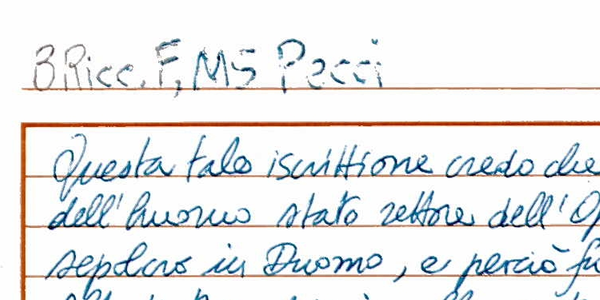 B Ricc. F, MS Pecci
Questa tale iscrittione credo che
dell'huomo stato rettore dell'
sepolcro in Duomo, e perciò